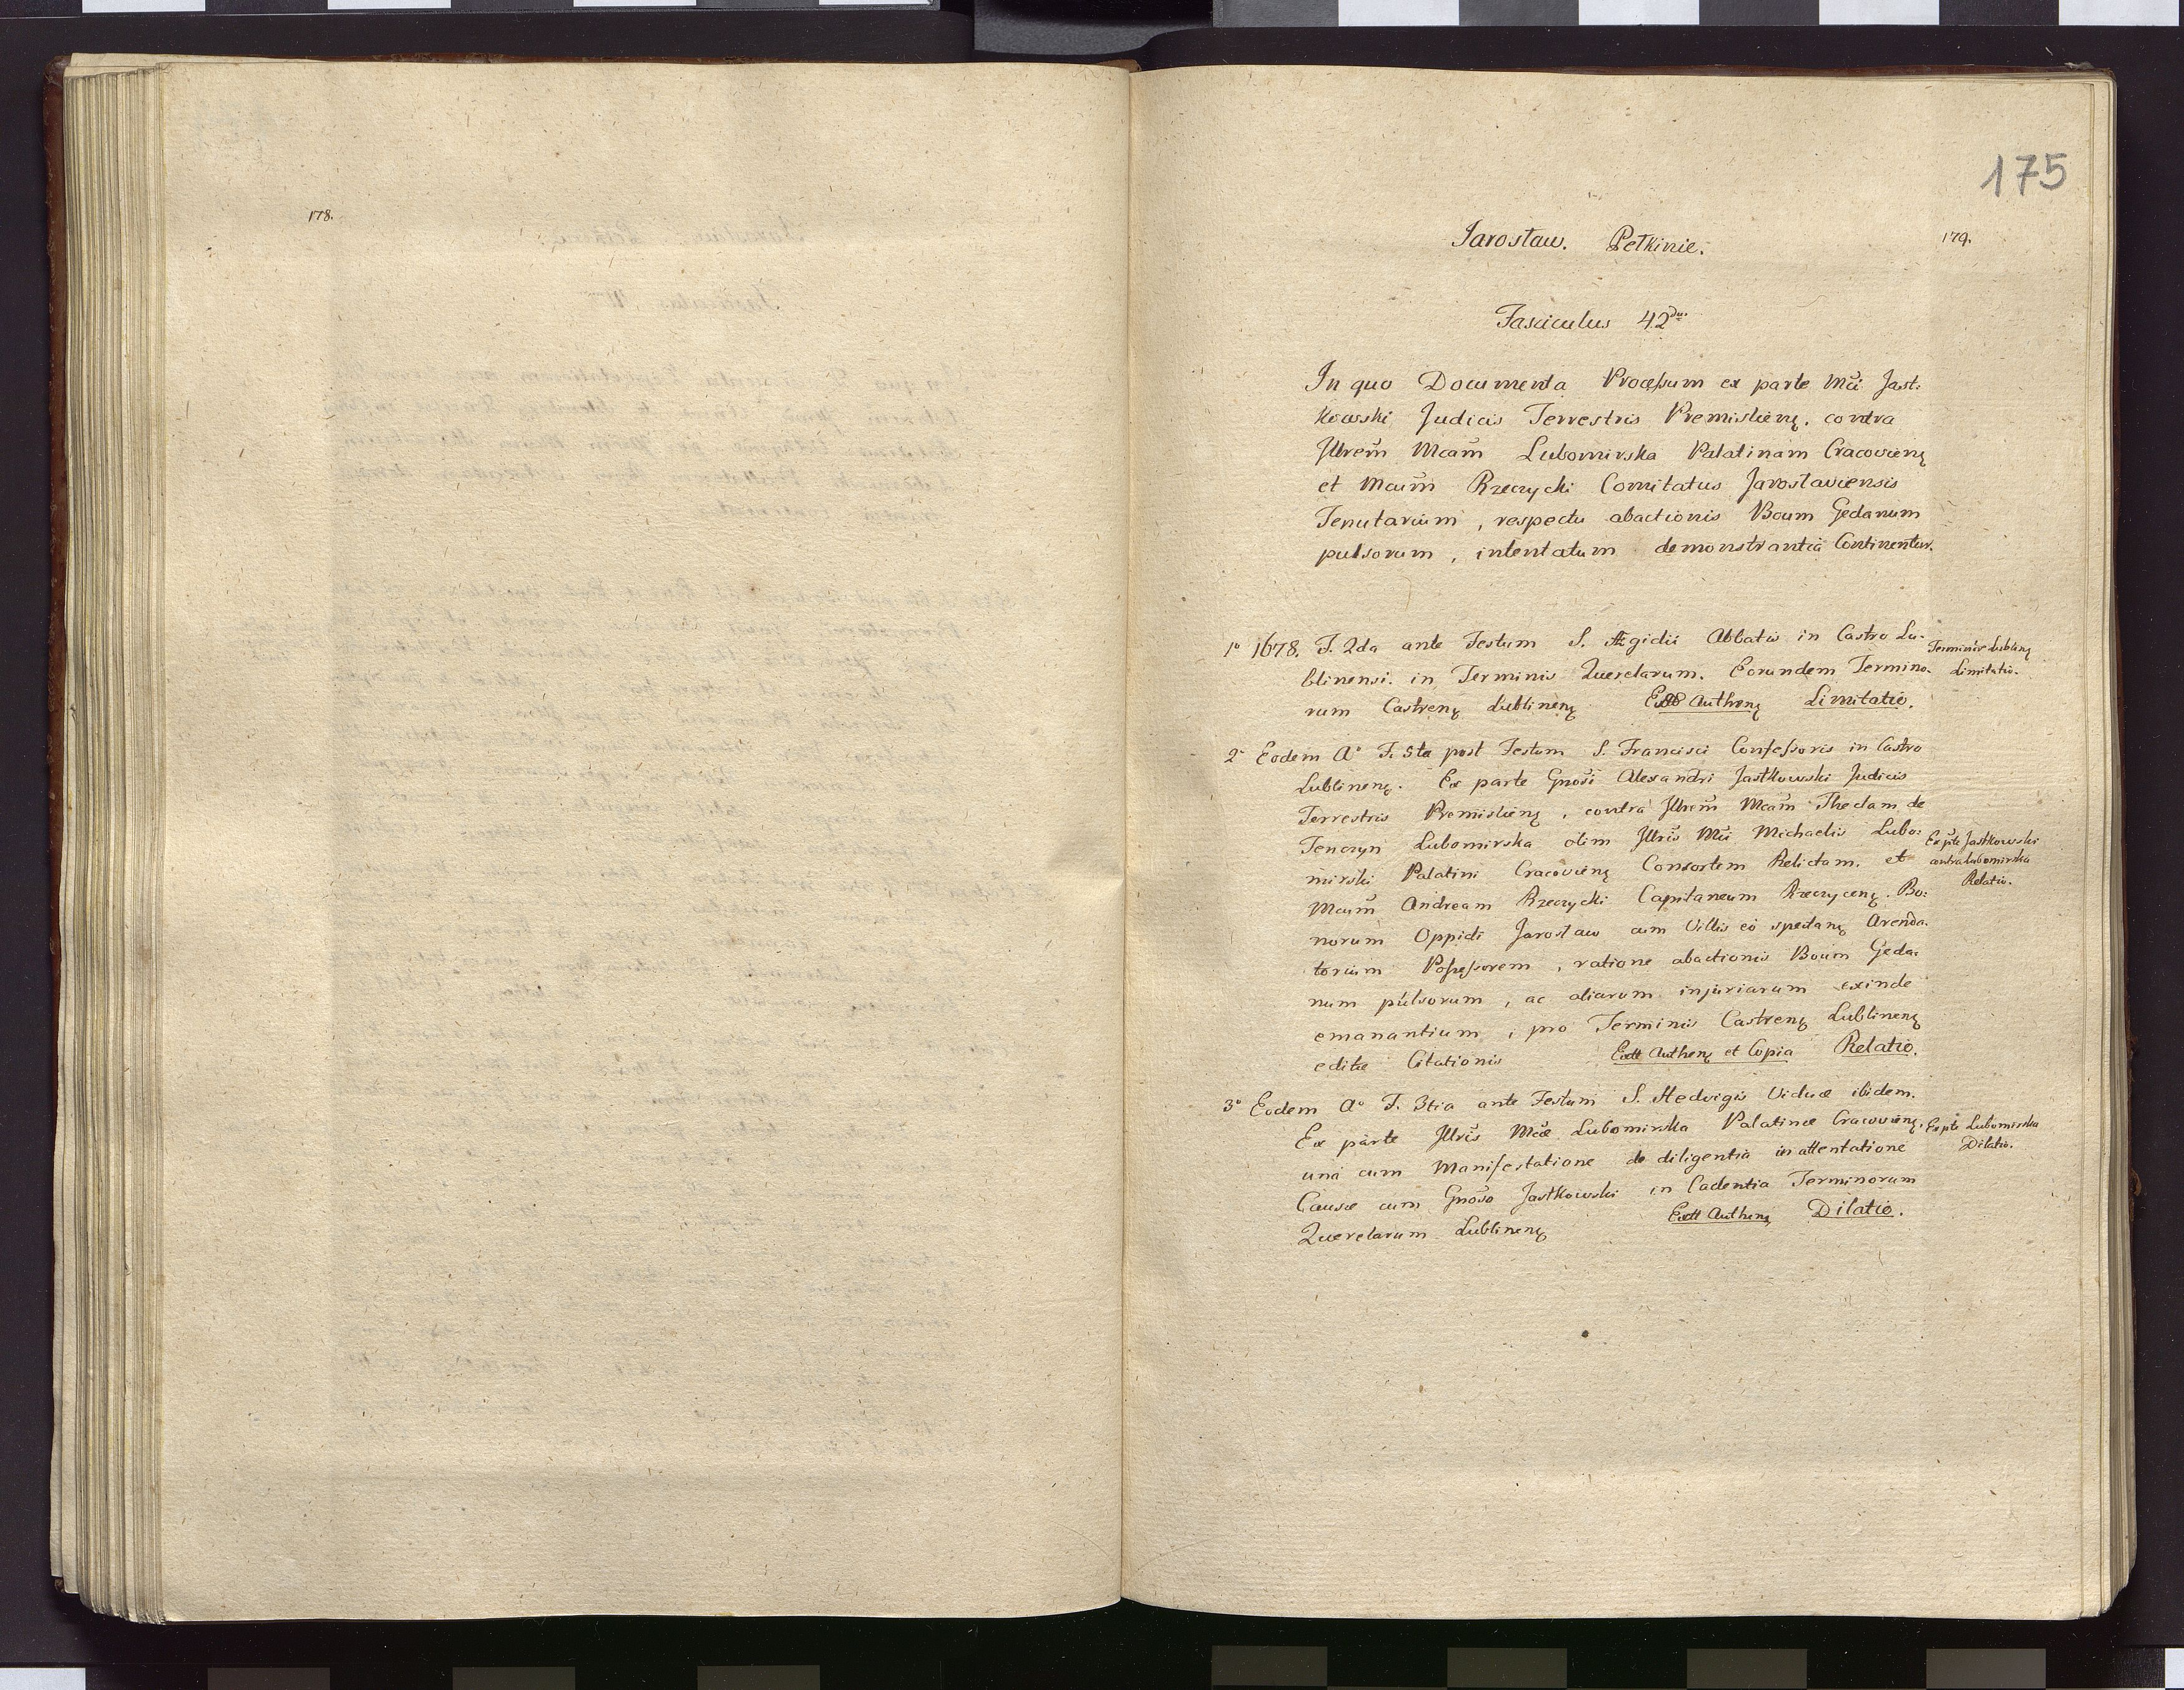 178.
175
Jarosław. Pełkinie.
179.
Fasciculus 42dus
In quo Documenta Processum ex parte Mci Jast-
kowski Judicis Terrestris Premislieng. contra
Jllrem Mcam Lubomirska Palatinam Cracovieng
et Mcum Rzeczycki Comitatus Jaroslaviensis
Tenutarium, respectu abactionis Boum Gedanum
pulsorum, intentatum demonstrantia Continentur.
1o 1678. F. 2da ante Festum S. Ægidii Abbatis in Castro Lu-
blinensi. in Terminis Querelarum. Eorundem Termino-
rum Castreng Lublineng Extt Autheng Limitatio.
Terminor Lublineg
Limitatio.
2o Eodem Ao F. 5ta post Festum S. Francisci Confessoris in Castro
Lublineng. Ex parte Gnosi Alexandri Jastkowski Judicis
Terrestris Premislieng, contra Jllrem Mcam Theclam de
Tenczyn Lubomirska olim Jllris Mci Michaelis Lubo-
mirski Palatini Cracovieng Consortem Relictam. et
Mcum Andream Rzeczycki Capitaneum Rzeczyceng. Bo-
norum Oppidi Jarosław cum Villis eo spectang Arenda-
torium Possessorem, ratione abactionis Boum Geda-
num pulsorum, ac aliarum injuriarum exinde
emanantium, pro Terminis Castreng Lublineng
editæ Citationis Extt Autheng et Copia Relatio.
Ex pte Jastkowski
contra Lubomirska
Relatio.
3o Eodem Ao F. 3tia ante Festum S. Hedvigis Viduæ ibidem.
Ex parte Jllris Mcæ Lubomirska Palatinæ Cracovieng,
una cum Manifestatione de diligentia in attentatione
Causæ cum Gnoso Jastkowski in Cadentia Terminorum
Querelarum Lublineng Extt Autheng Dilatio.
Ex pte Lubomirska
Dilatio.